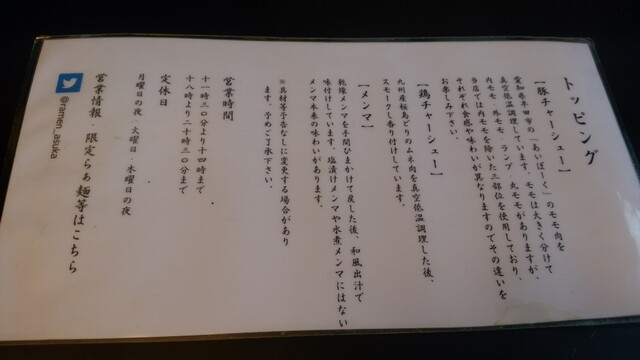 トッピング
【豚チャーシュー】
愛知県半田市の「あいぽーく」のモモ肉を
真空低温調理しています。モモは大きく分けて
内モモ、外モモ、ランプ、丸モモがありますが、
当店では内モモを除いた三部位を使用しており、
それぞれ食感や味わいが異なりますのでその違いを
お楽しみ下さい。
【鶏チャーシュー】
九州産桜島どりのムネ肉を真空低温調理した後、
スモークし香り付けしています。
【メンマ】
乾燥メンマを手間ひまかけて戻した後、和風出汁で
味付けしています。塩漬けメンマや水煮メンマにはない
メンマ本来の味わいがあります。
※具材等予告なしに変更する場合があり
ます。予めご了承下さい。
営業時間
十一時三〇分より十四時まで
十八時より二十時三〇分まで
定休日
月曜日の夜、火曜日、木曜日の夜
営業情報、限定らぁ麺等はこちら
@ramen_asuka